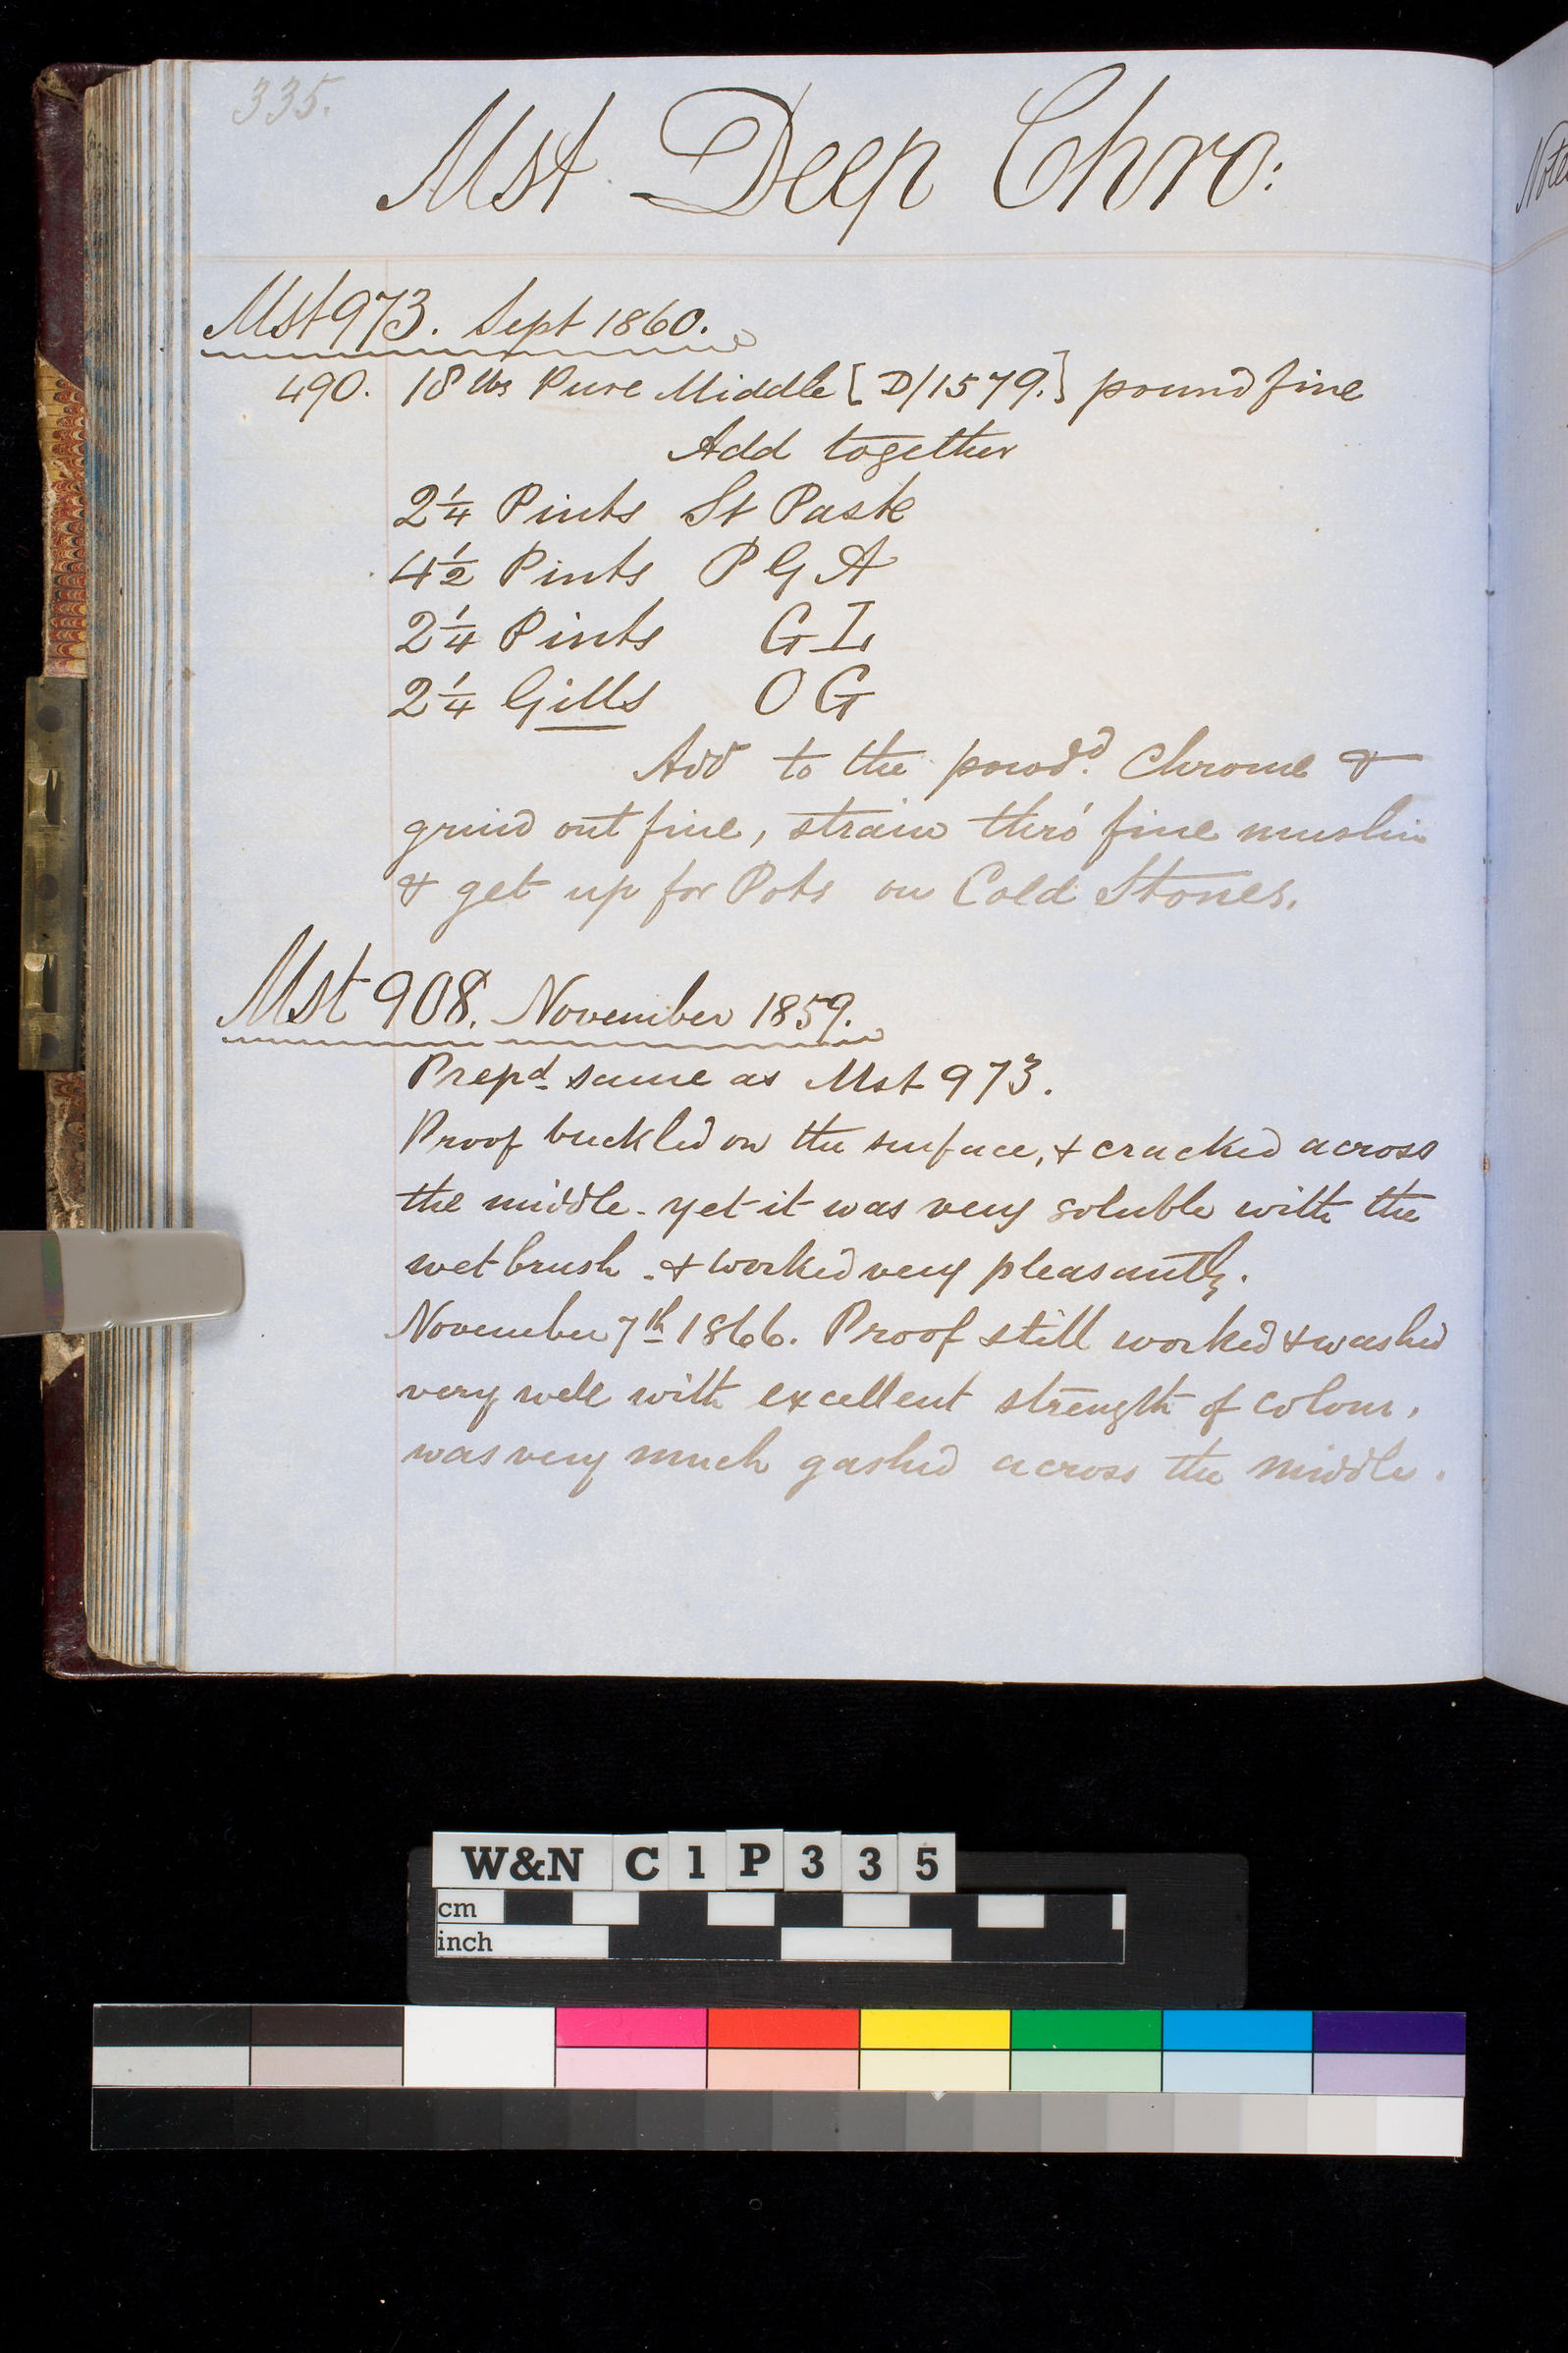 335.
Mst Deep Chro:
Note
Mst 973. Sept 1860.
490. 18 lbs Pure Middle [D/1579.] pound fine
Add together
2 1/4 Pints St Paste
4 1/2 Pints P G A
2 1/4 Pints G L
2 1/4 Gills O G
Add to the powdd. Chrome &
grind out fine, strain thro' fine muslin
& get up for Pots on Cold Stones.
Mst 908. November 1859.
Prepd same as Mst 973.
Proof buckled on the surface, & cracked across
the middle - yet it was very soluble with the
wet brush - & worked very pleasantly.
November 7th 1866. Proof still worked & washed
very well with excellent strength of colour,
was very much gashed across the middle.
W&N C 1 P 3 3 5
cm
inch